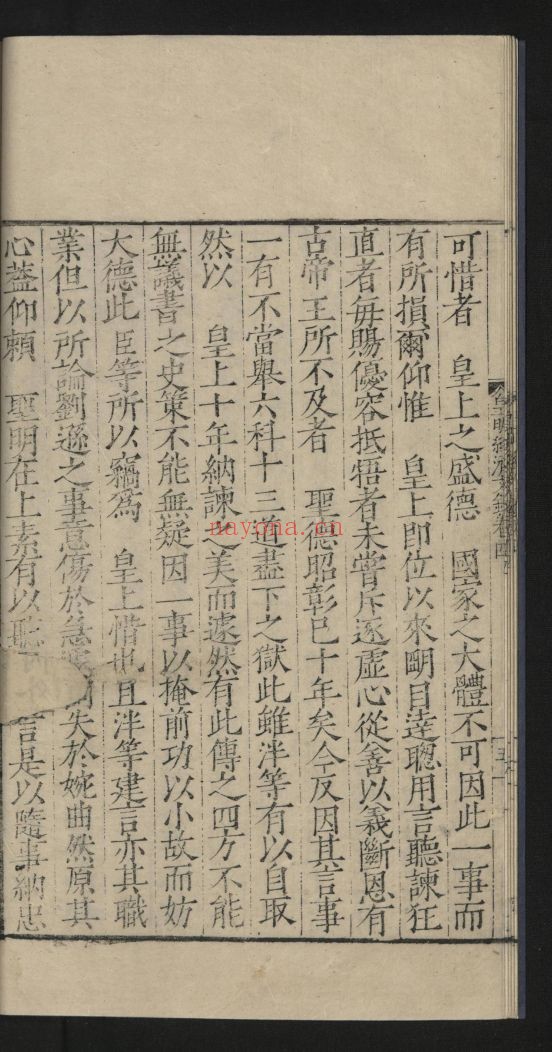 可惜者　皇上之盛德　國家之大體不可因此一事而
有所損爾仰惟　皇上即位以來明目達聰用言聽諫狂
直者每賜優容抵牾者未嘗斥逐虛心從善以義斷恩有
古帝王所不及者　聖德昭彰已十年矣今反因其言事
一有不當舉六科十三道盡下之獄此雖泮等有以自取
然以　皇上十年納諫之美而遽然有此傳之四方不能
無議書之史策不能無疑因一事以掩前功以小故而妨
大德此臣等所以竊為　皇上惜也且泮等建言亦其職
業但以所論劉遜之事意傷於急失於婉曲然原其
心蓋仰賴　聖明在上素有以聽言是以隨事納忠
皇明經濟文錄卷四
nayona.cn